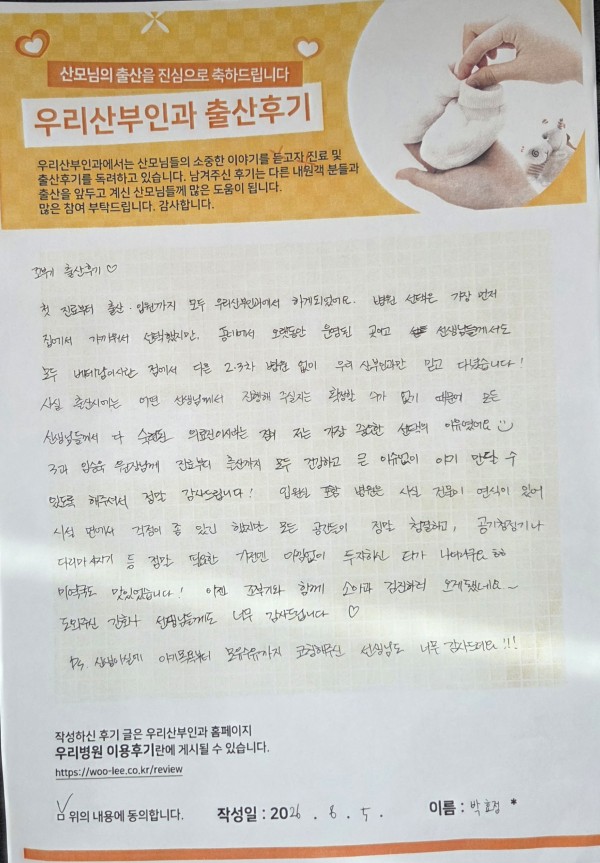 산모님의 출산을 진심으로 축하드립니다
우리산부인과 출산후기
우리산부인과에서는 산모님들의 소중한 이야기를 듣고자 진료 및
출산후기를 독려하고 있습니다. 남겨주신 후기는 다른 내원객 분들과
출산을 앞두고 계신 산모님들께 많은 도움이 됩니다.
많은 참여 부탁드립니다. 감사합니다.
출산후기 ♡
첫 진료부터 출산·입원까지 모두 우리산부인과에서 하게되었어요. 병원 선택은 가장 먼저
집에서 가까워서 선택했지만, 오랫동안 운영된 곳이고 선생님들께서도
모두 베테랑이시란 점에서 다른 2·3차 병원 없이 우리 산부인과만 믿고 다녔습니다!
사실 출산시에는 어떤 선생님께서 진행해 주실지는 확정할 수가 없기 때문에 모든
선생님들께서 다 숙련된 의료진이시라는 점이 저는 가장 중요한 선택의 이유였어요
3과 원장님께 진료부터 출산까지 모두 건강하고 큰 이슈없이 아기 만날 수
있도록 해주셔서 정말 감사드립니다! 입원실 포함 병원은 사실 건물이 연식이 있어
시설 면에서 걱정이 좀 있긴 했지만 모든 공간들이 정말 청결하고, 공기청정기나
다리마사지기 등 정말 필요한 가전엔 아낌없이 투자하신 티가 나더라구요 ㅎㅎ
미역국도 맛있었습니다! 이젠 조리기와 함께 소아과 검진하러 오게됐네요~
도와주신 간호사 선생님들께도 너무 감사드립니다 ♡
P.S. 신생아실에 아기목욕부터 모유수유까지 코칭해주신 선생님도 너무 감사드려요!!!
작성하신 후기 글은 우리산부인과 홈페이지
우리병원 이용후기란에 게시될 수 있습니다.
https://woo-lee.co.kr/review
위의 내용에 동의합니다. 작성일 : 2026 . 8 . 5 . 이름 : 박효정 *